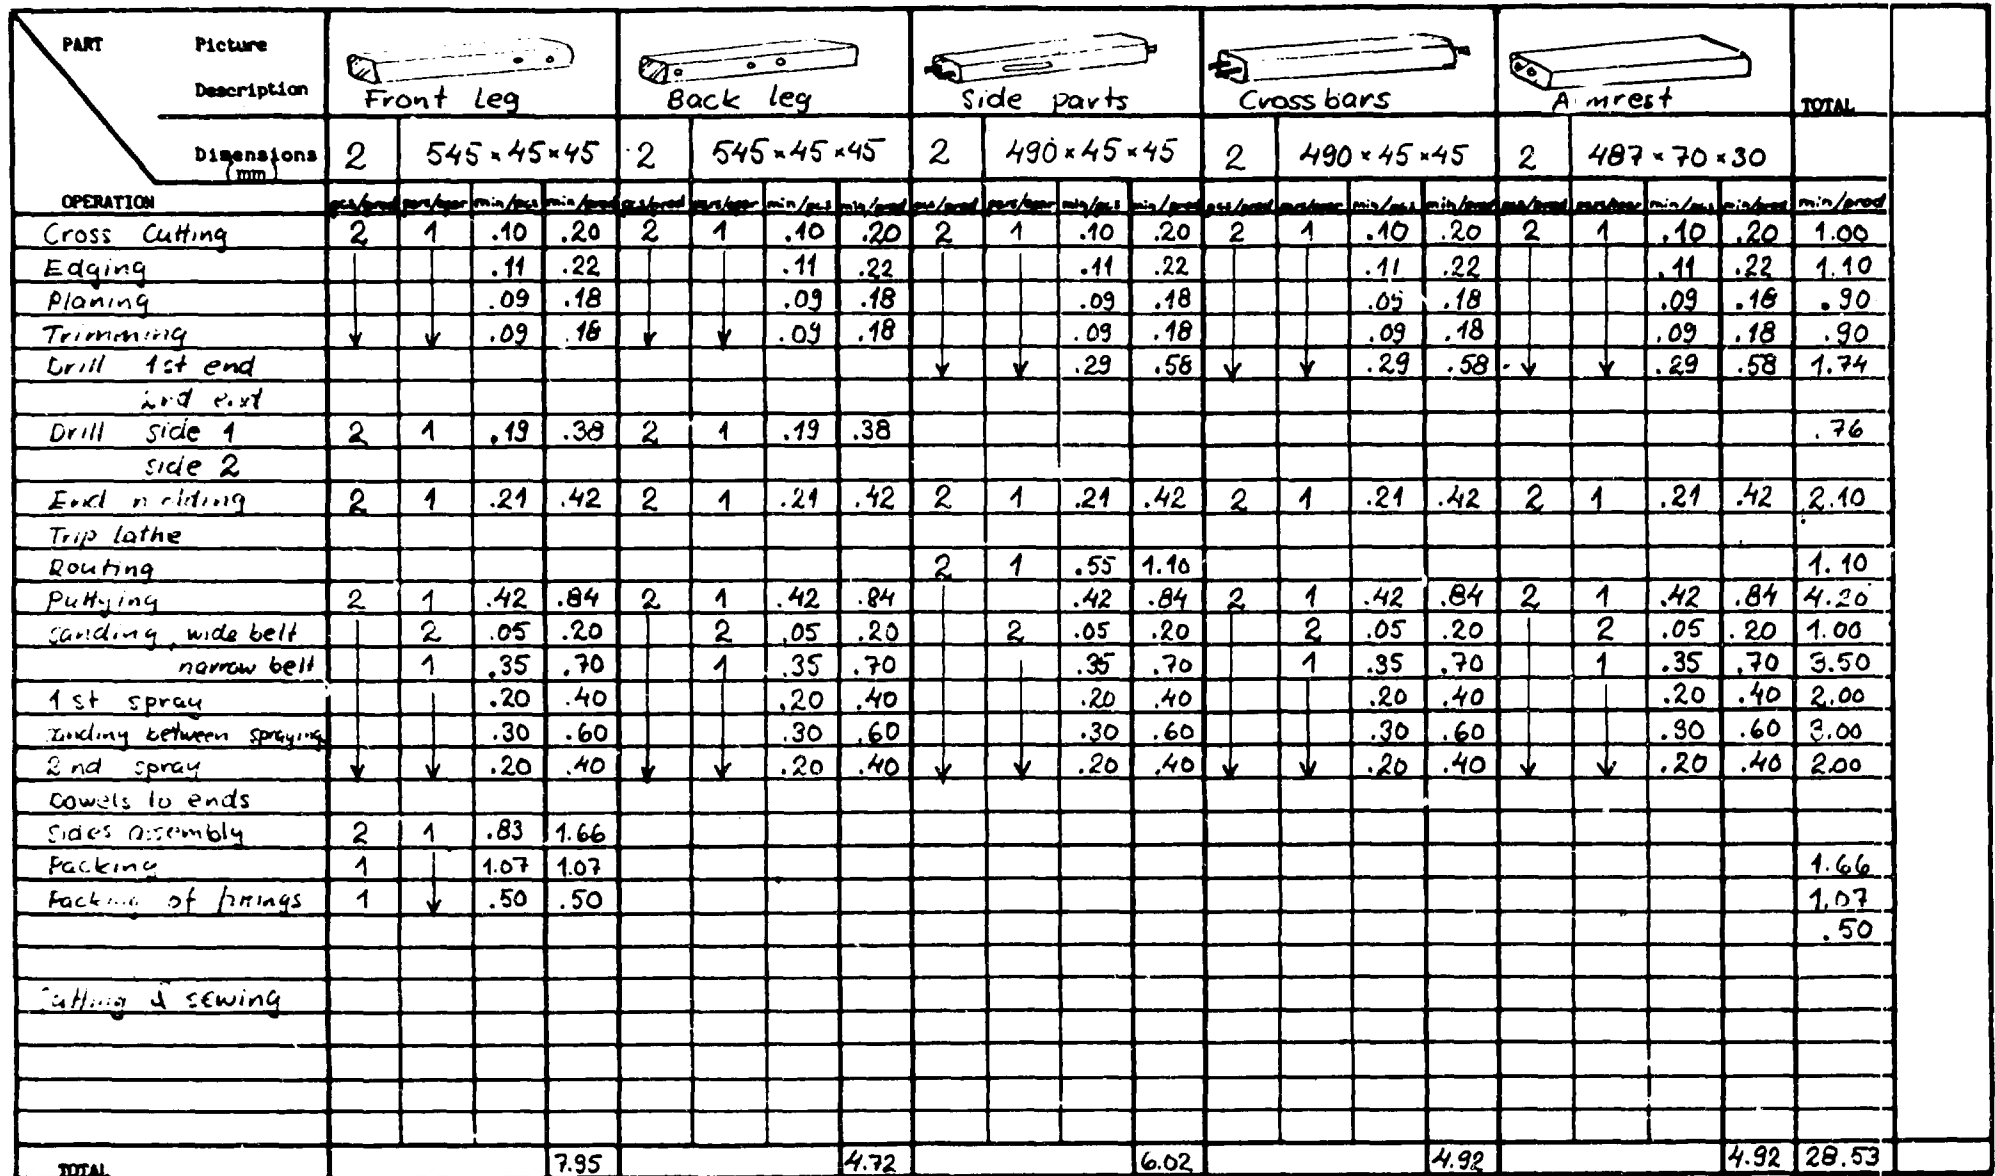 PART Picture
Description Front leg Back leg Side parts Crossbars A mrest TOTAL
Dimensions (mm) 2 545×45×45 2 545×45×45 2 490×45×45 2 490×45×45 2 487×70×30
OPERATION pcs/prod pers/oper min/pcs min/prod pcs/prod pers/oper min/pcs min/prod pcs/prod pers/oper min/pcs min/prod pcs/prod pers/oper min/pcs min/prod pcs/prod pers/oper min/pcs min/prod min/prod
Cross Cutting 2 1 .10 .20 2 1 .10 .20 2 1 .10 .20 2 1 .10 .20 2 1 .10 .20 1.00
Edging .11 .22 .11 .22 .11 .22 .11 .22 .11 .22 1.10
Planing .09 .18 .09 .18 .09 .18 .09 .18 .09 .18 .90
Trimming .09 .18 .09 .18 .09 .18 .09 .18 .09 .18 .90
Drill 1st end .29 .58 .29 .58 .29 .58 1.74
Drill side 1 2 1 .19 .38 2 1 .19 .38 .76
side 2
End 2 1 .21 .42 2 1 .21 .42 2 1 .21 .42 2 1 .21 .42 2 1 .21 .42 2.10
Trip lathe
Routing 2 1 .55 1.10 1.10
Puttying 2 1 .42 .84 2 1 .42 .84 .42 .84 2 1 .42 .84 2 1 .42 .84 4.20
Sanding, wide belt 2 .05 .20 2 .05 .20 2 .05 .20 2 .05 .20 2 .05 .20 1.00
narrow belt 1 .35 .70 1 .35 .70 .35 .70 1 .35 .70 1 .35 .70 3.50
1st spray .20 .40 .20 .40 .20 .40 .20 .40 .20 .40 2.00
between spraying .30 .60 .30 .60 .30 .60 .30 .60 .30 .60 3.00
2nd spray .20 .40 .20 .40 .20 .40 .20 .40 .20 .40 2.00
Dowels to ends
Sides assembly 2 1 .83 1.66
Packing 1 1.07 1.07 1.66
Packing of 1 .50 .50 1.07
.50
& sewing
TOTAL 7.95 4.72 6.02 4.92 4.92 28.53